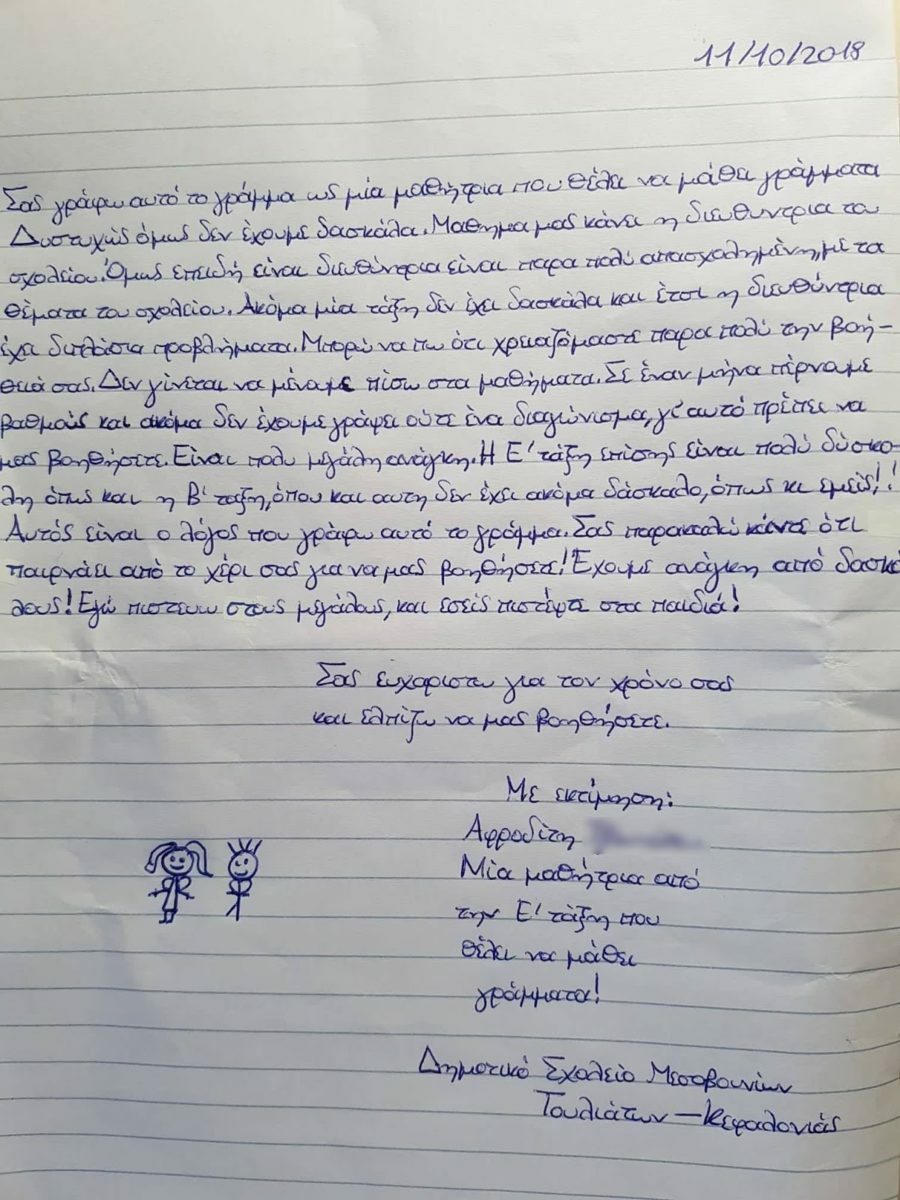 11/10/2018
Σας γράφω αυτό το γράμμα ως μία μαθήτρια που θέλει να μάθει γράμματα
Δυστυχώς όμως δεν έχουμε δασκάλα. Μαθημα μας κάνει η διευθυντρια του
σχολείου. Όμως επειδή είναι διευθύντρια είναι παρα πολύ απασχολημένη, με τα
θέματα του σχολείου. Ακόμα μία τάξη δεν έχει δασκάλα και έτσι η διευθύντρια
έχει διπλάσια προβλήματα. Μπορώ να πω ότι χρειαζόμαστε παρα πολύ την βοή-
θειά σας. Δεν γίνεται να μέναμε πίσω στα μαθήματα. Σε έναν μήνα πέρναμε
βαθμούς και ακόμα δεν έχουμε γράψει ούτε ένα διαγώνισμα, γι' αυτό πρέπει να
μας βοηθήσετε. Είναι πολυ μεγάλη ανάγκη. Η Ε' τάξη επίσης είναι πολύ δύσκο-
λη όπως και η Β' ταξη, όπου και αυτη δεν έχει ακόμα δάσκαλο, όπως κι εμείς!!
Αυτός είναι ο λόγος που γράφω αυτό το γράμμα. Σας παρακαλώ κάντε ότι
παιρνάει από το χέρι σας για να μας βοηθήσετε! Έχουμε ανάγκη από δασκά
λους! Εγώ πιστευω στους μεγάλους, και εσείς πιστέψτε στα παιδιά!
Σας ευχαριστω για τον χρόνο σας
και ελπίζω να μας βοηθήσετε.
Με εκτίμηση:
Αφροδίτη
Μία μαθήτρια από
την Ε' τάξη που
θέλει να μάθει
γράμματα!
Δημοτικό Σχολείο Μεσοβουνίων
Τουλιάτων – Κεφαλονιάς